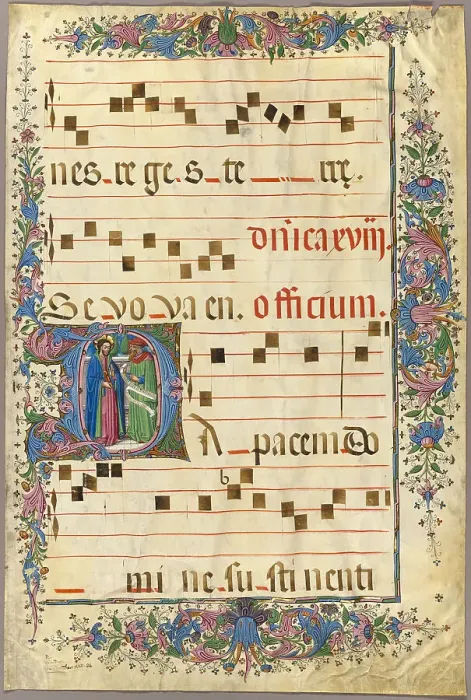 nes_re ge.s_te___rrę.
dn̄icaxviij.
Se vo_va en. officium.
DA_pacem_Do
b
_mi_ne_su_stinenti